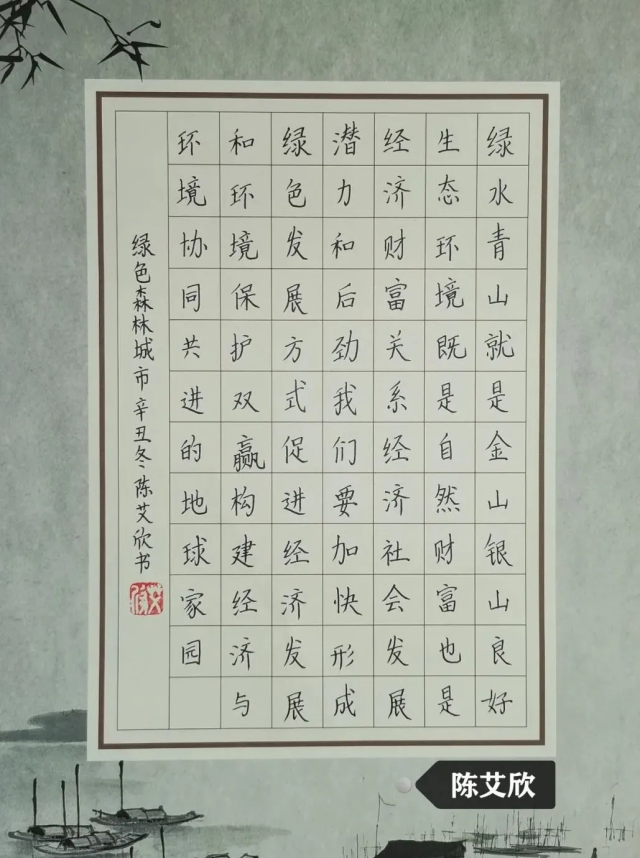 绿水青山就是金山银山良好
生态环境既是自然财富也是
经济财富关系经济社会发展
潜力和后劲我们要加快形成
绿色发展方式促进经济发展
和环境保护双赢构建经济与
环境协同共进的地球家园
绿色森林城市辛丑冬陈艾欣书
陈艾欣